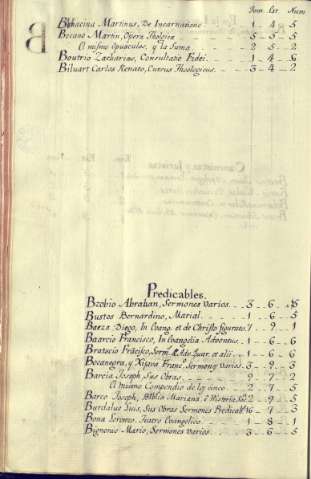 Tom. Let. Num.
B
Bonacina Martinus, De Incarnatione 1 - 4 - 5
Becano Martin, Opera Theolgica 5 - 5 - 5
El mismo Opusculos, y la Suma 2 - 5 - 2
Boutrio Zacharias, Consultatio Fidei 1 - 4 - 6
Biluart Carlos Renato, Cursus Theologicus 3 - 4 - 2
Predicables.
Bzobio Abrahan, Sermones Varios 3 - 6 - 6
Bustos Bernardino, Marial 1 - 6 - 5
Baeza Diego, In Evang. et de Christo figurato 7 - 9 - 1
Francisco, In Evangelia Adventus 1 - 6 - 6
Serm. de et alii 1 - 6 - 6
Bocanegra, y Franc. Sermons Varios 3 - 9 - 3
Barcia Joseph, Sus Obras 9 - 7 - 2
El mismo Compendio de los cinco 2 - 7 - 5
Barco Joseph, Biblia Mariana 2 - 9 - 5
Burdalue Luis, Sus Obras Sermones Predicab. 16 - 7 - 3
Bona Lorenzo, Teatro Evangelico 1 - 8 - 1
Bignonio Mario, Sermones varios 3 - 6 - 5